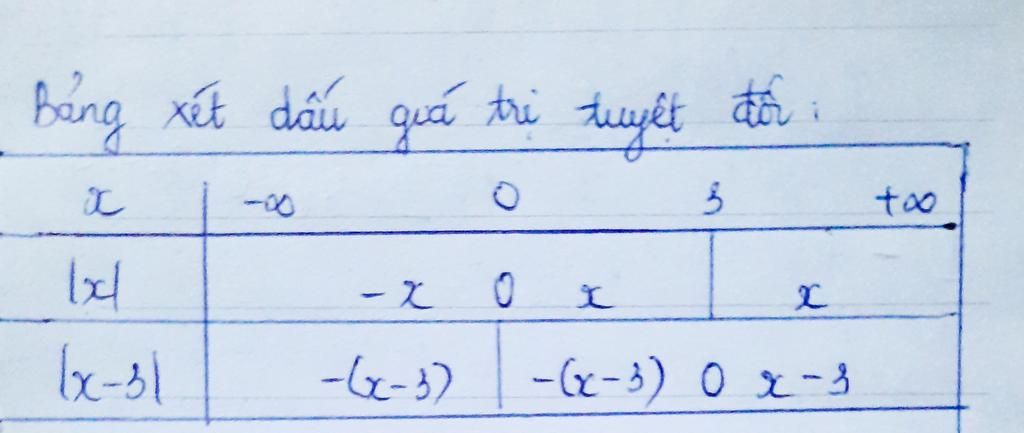 Bảng xét dấu quá trị tuyệt đối:
x -∞ 0 3 +∞
|x| -x 0 x x
|x-3| -(x-3) -(x-3) 0 x-3